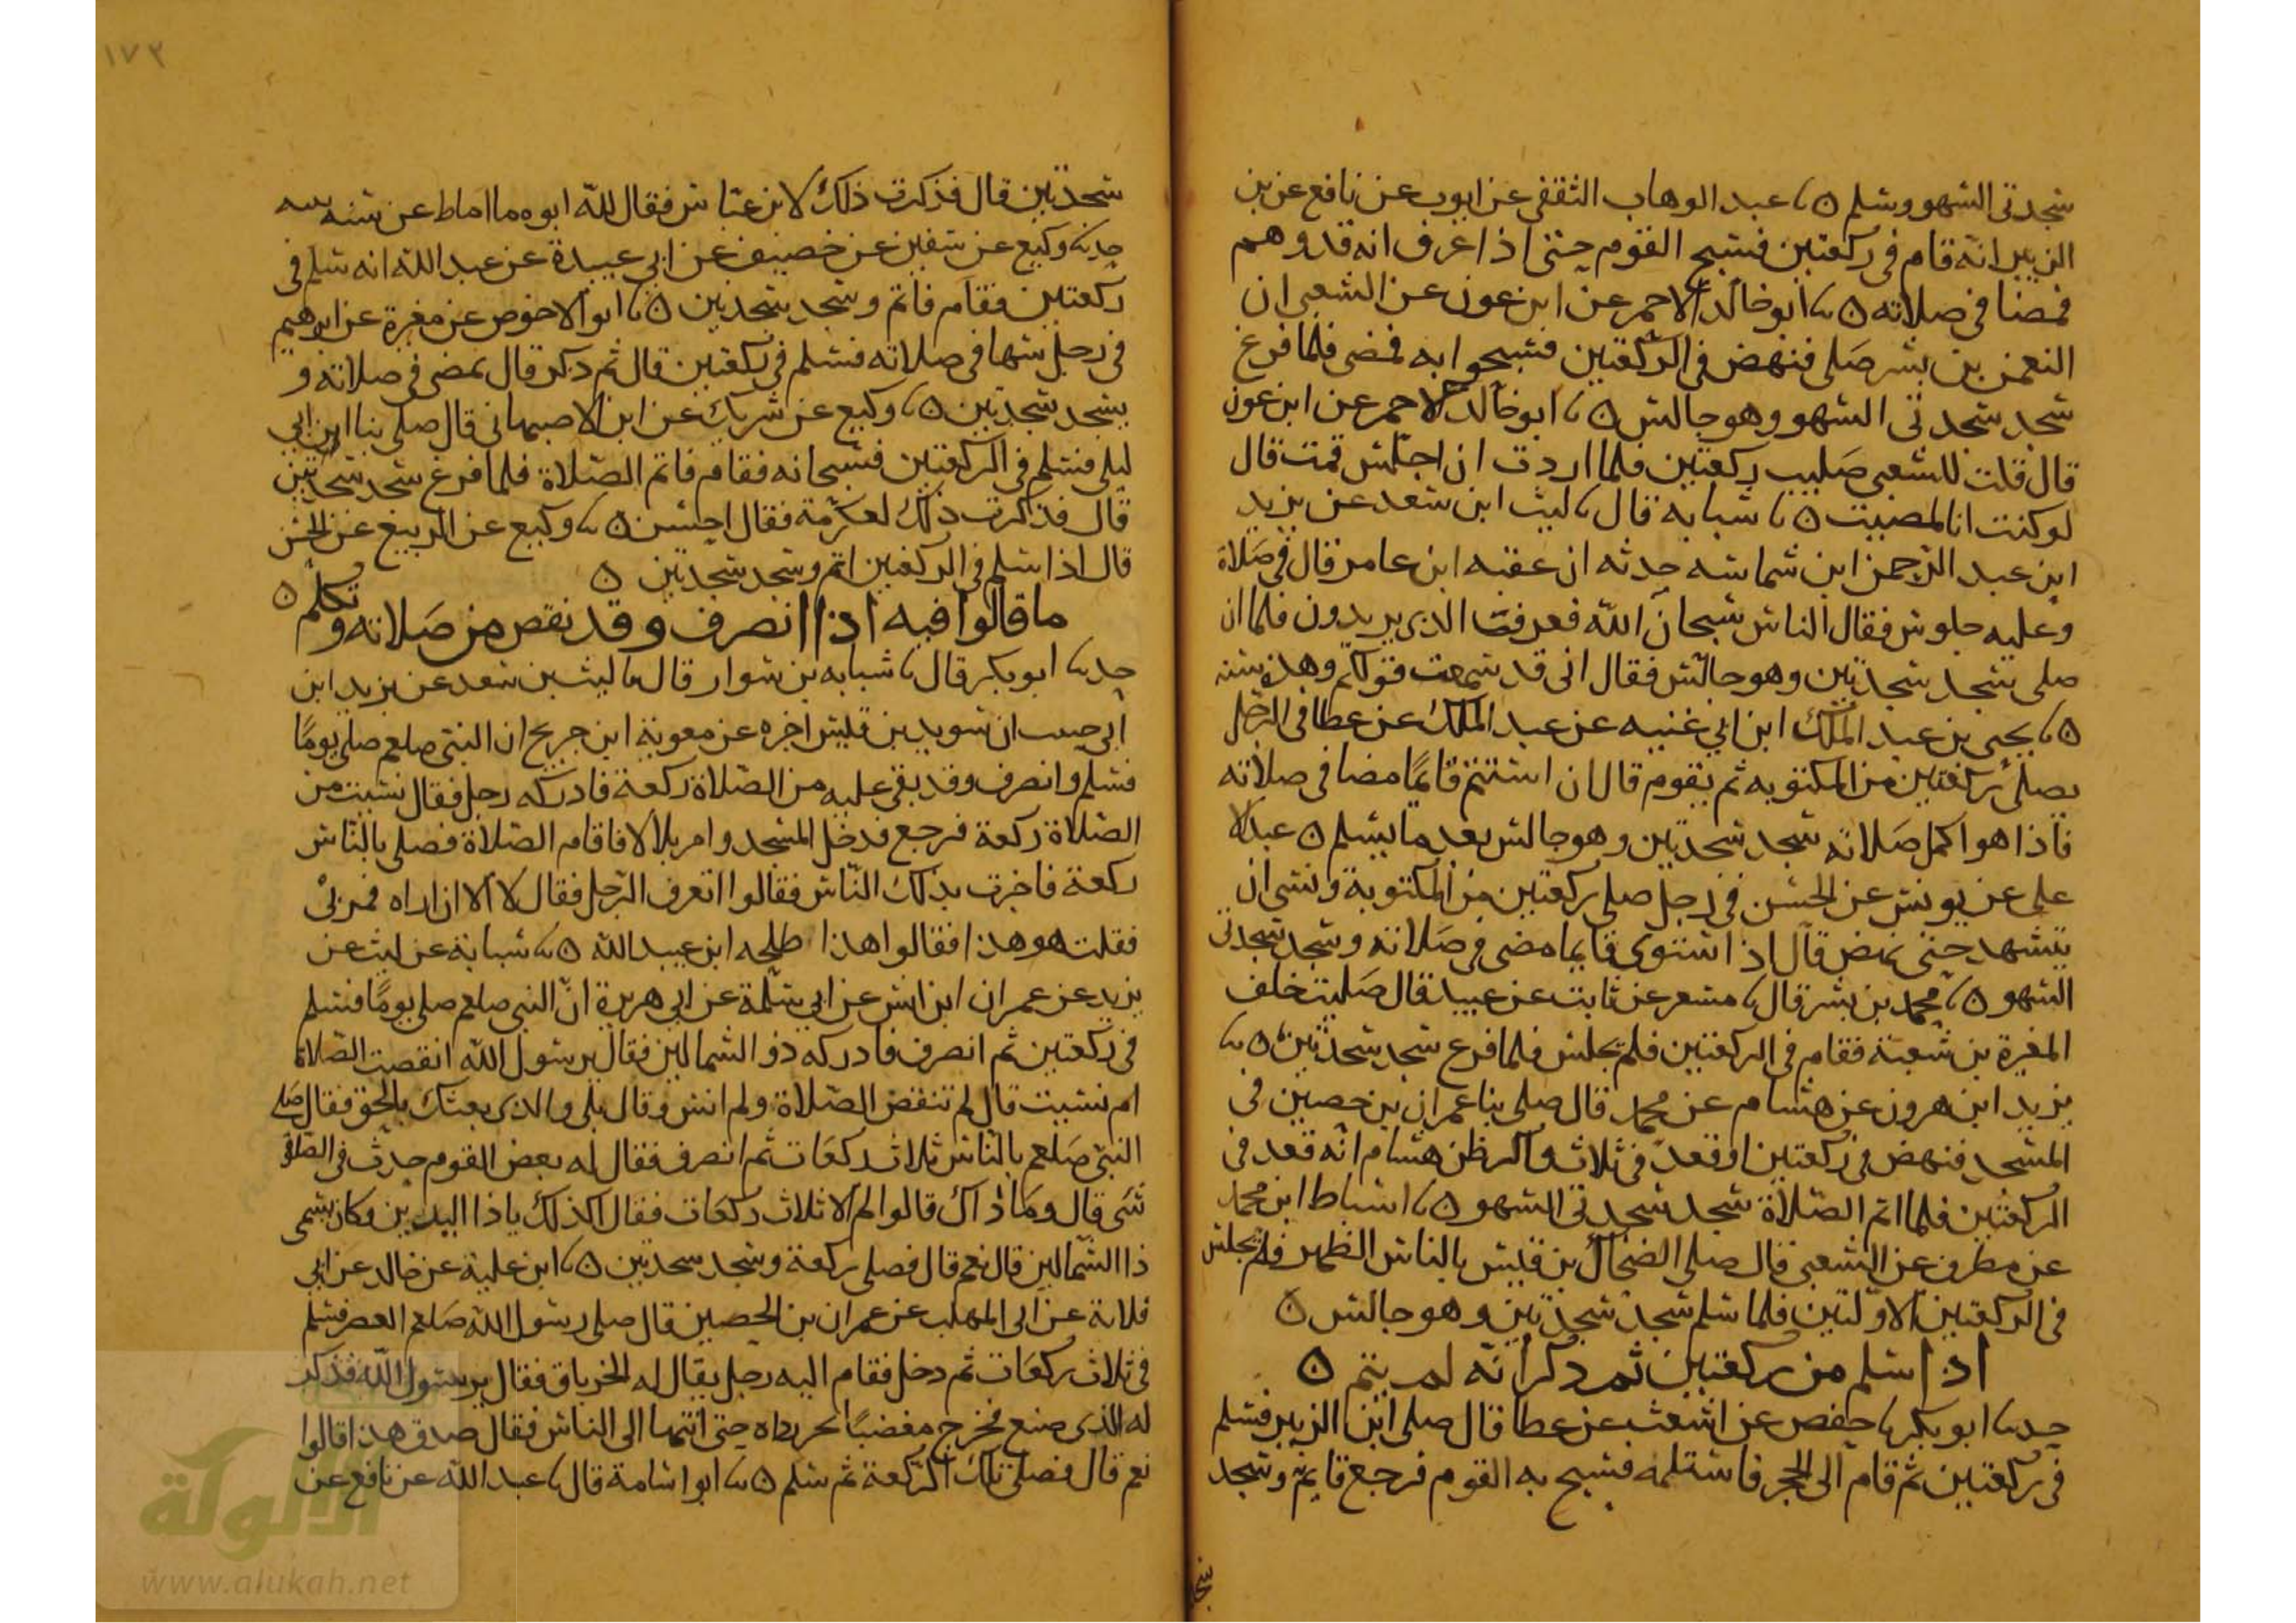 سجدتى السهو وسلم ۞ نا عبد الوهاب الثقفى عن ايوب عن نافع عن بن
الزبير انه قام فى ركعتين فسبح القوم حتى اذا عرف انه قد وهم
فمضا فى صلاته ۞ نا ابو خالد الاحمر عن ابن عون عن الشعبى ان
النعمن بن بشر صلى فنهض فى الركعتين فسبحوا به فمضى فلما فرغ
سجد سجدتى السهو وهو جالس ۞ نا ابو خالد الاحمر عن ابن عون
قال قلت للشعبى صليت ركعتين فلما اردت ان اجلس قمت قال
لو كنت انا لمضيت ۞ نا شبابه قال نا ليث ابن سعد عن يزيد
ابن عبد الرحمن ابن شماسه حدثه ان عقبه ابن عامر قال فى صلاة
وعليه جلوس فقال الناس سبحان الله فعرف الذى يريدون فلما ان
صلى سجد سجدتين وهو جالس فقال انى قد سمعت قولكم وهذه سنه
۞ نا يحيى بن عبد الملك ابن ابى غنيه عن عبد الملك عن عطا فى الرجل
يصلى ركعتين من المكتوبه ثم يقوم قال ان استتم قائما مضا فى صلاته
فاذا هو اكمل صلاته سجد سجدتين وهو جالس بعد ما يسلم ۞ عبد الا
على عن يونس عن الحسن فى رجل صلى ركعتين من المكتوبة ونسى ان
يتشهد حتى نهض قال اذا استوى قايما مضى فى صلاته وسجد سجدتى
السهو ۞ نا محمد بن بشر قال نا مسعر عن ثابت عن عبيد قال صليت خلف
المغيرة بن شعبة فقام فى الركعتين فلم يجلس فلما فرغ سجد سجدتين ۞ نا
يزيد ابن هرون عن هشام عن محمد قال صلى بنا عمران بن حصين فى
المسجد فنهض فى ركعتين او قعد فى ثلاث واكبر ظن هشام انه قعد فى
الركعتين فلما اتم الصلاة سجد سجدتى السهو ۞ نا اسباط ابن محمد
عن مطرف عن الشعبى قال صلى الضحاك بن قيس بالناس الظهر فلم يجلس
فى الركعتين الاولتين فلما سلم سجد سجدتين وهو جالس ۞
اذا سلم من ركعتين ثم ذكر انه لم يتم ۞
حدثنا ابو بكر نا حفص عن اشعث عن عطا قال صلى ابن الزبير فسلم
فى ركعتين ثم قام الى الحجر فاستلمه فسبح به القوم فرجع فاتم وسجد
سجدتين قال فذكرت ذلك لابن عباس فقال لله ابوه ما اماط عن سنة نبيه
حدثنا وكيع عن سفين عن خصيف عن ابى عبيدة عن عبد الله انه سلم فى
ركعتين فقام فاتم وسجد سجدتين ۞ نا ابو الاحوص عن مغيرة عن ابرهيم
فى رجل سها فى صلاته فسلم فى ركعتين قال ثم ذكر قال يمضى فى صلاته و
يسجد سجدتين ۞ نا وكيع عن شريك عن ابن الاصبهانى قال صلى بنا ابن ابى
ليلى فسلم فى الركعتين فسبحنا به فقام فاتم الصلاة فلما فرغ سجد سجدتين
قال فذكرت ذلك لعكرمة فقال احسن ۞ نا وكيع عن الربيع عن الحسن
قال اذا سلم فى الركعتين اتم وسجد سجدتين ۞
ما قالوا فيه اذا انصرف وقد نقص من صلاته وتكلم ۞
حدثنا ابو بكر قال نا شبابه بن سوار قال نا ليث بن سعد عن يزيد ابن
ابى حبيب ان سويد بن قيس اخبره عن معوية ابن جريح ان النبى صلعم صلى يوما
فسلم وانصرف وقد بقى عليه من الصلاة ركعة فادركه رجل فقال نسيت من
الصلاة ركعة فرجع فدخل المسجد وامر بلالا فاقام الصلاة فصلى بالناس
ركعة فاخبرت بذلك الناس فقالوا اتعرف الرجل فقال لا الا ان اراه فمر بى
فقلت هو هذا فقالوا هذا طلحه ابن عبيد الله ۞ نا شبابة عن ليث عن
يزيد عن عمران ابن انس عن ابى سلمة عن ابى هريرة ان النبى صلعم صلى يوما فسلم
فى ركعتين ثم انصرف فادركه ذو الشمالين فقال يرسول الله انقصت الصلاة
ام نسيت قال لم تنقص الصلاة ولم انس وقال بلى والذى بعثك بالحق فقال صلى
النبى صلعم بالناس ثلاث ركعات ثم انصرف فقال له بعض القوم حدث فى الصلاة
شى قال وما ذاك قالوا لم الا ثلاث ركعات فقال اكذلك يا ذا اليدين وكان يسمى
ذا الشمالين قال نعم قال فصلى ركعة وسجد سجدتين ۞ نا ابن علية عن خالد عن ابى
قلابة عن ابى المهلب عن عمران بن الحصين قال صلى رسول الله صلعم العصر فسلم
فى ثلاث ركعات ثم دخل فقام اليه رجل يقال له الخرباق فقال يرسول الله فذكر
له الذى صنع فخرج مغضبا يجر رداه حتى انتها الى الناس فقال صدق هذا قالوا
نعم قال فصلى تلك الركعة ثم سلم ۞ نا ابو اسامة قال نا عبد الله عن نافع عن
١٧٢
الألوكة
www.alukah.net